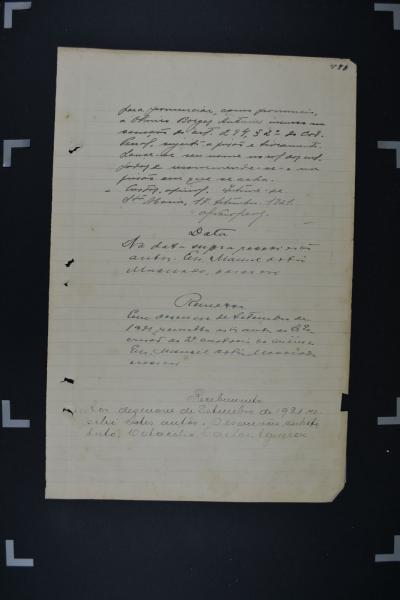 para pronunciar, como pronuncio,
a Borges Antunes incurso na
sancção do art. 294, § 2º do Cod.
Penal, sujeito a prisão e livramento.
Lance-se seu nome no rol dos cul-
pados e recommende-se-o na
prisão em que se acha.
Custas, afinal. Intime-se.
Sta Maria, 17 Setembro 1921.
Data
Na data supra recebi estes
autos. Eu, Manoel
Machado, escrivão
Remessa
Aos dezenove de Setembro de
1921, remetto estes autos ao
Eu, Manoel
escrivão
Recebimento
Aos dezenove de Setembro de 1921 re-
cebi estes autos. O escrivão substi-
tuto,